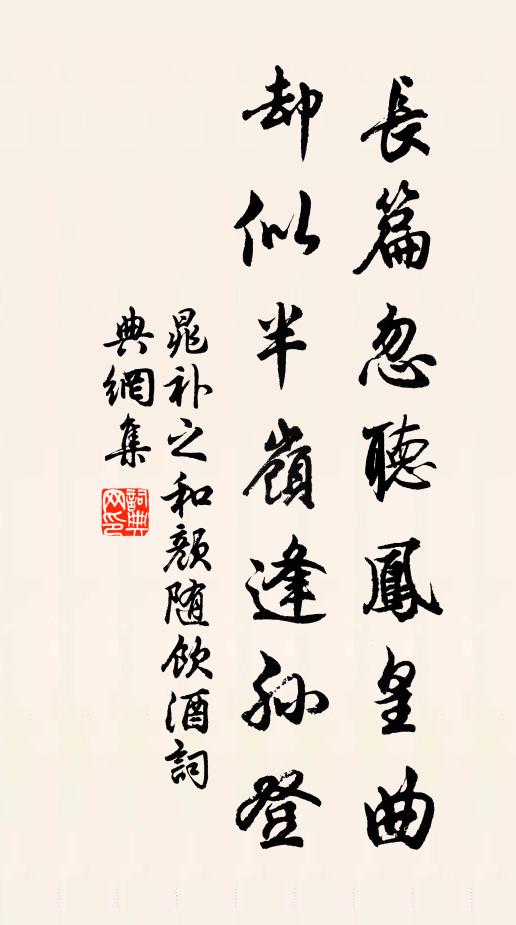 長篇忽聽鳳皇曲
却似半嶺逢孫登
晁补之和顏随飲酒詞
典網集
詞典网印